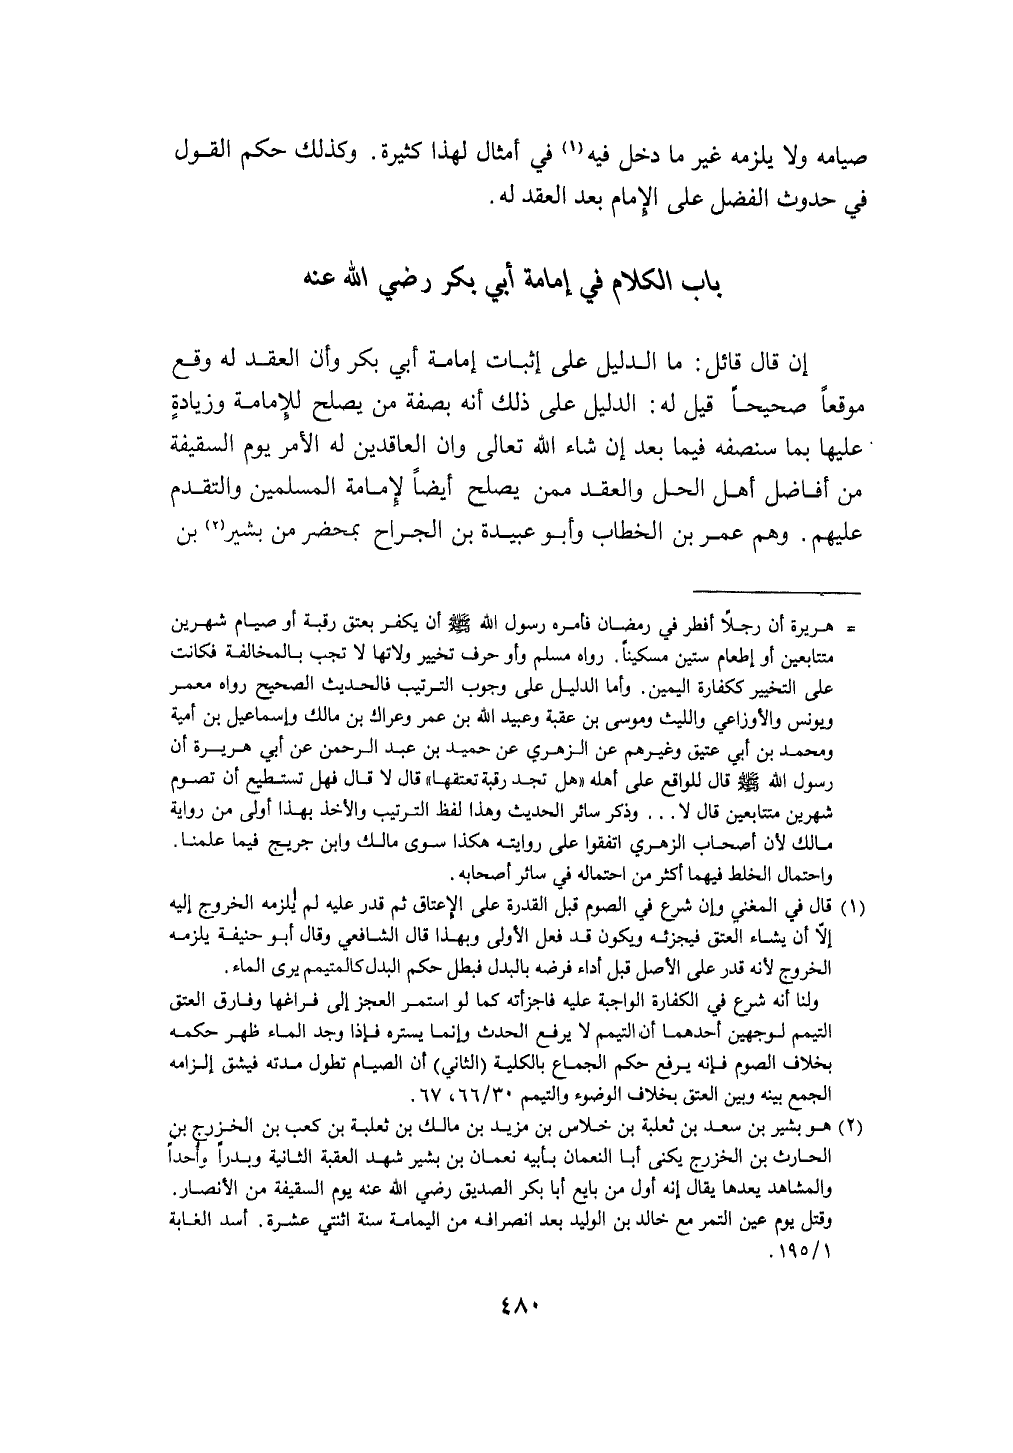 صيامه ولا يلزمه غير ما دخل فيه(١) في أمثال لهذا كثيرة. وكذلك حكم القول
في حدوث الفضل على الإمام بعد العقد له.
باب الكلام في إمامة أبي بكر رضي الله عنه
إن قال قائل: ما الدليل على إثبات إمامة أبي بكر وأن العقد له وقع
موقعاً صحيحاً قيل له: الدليل على ذلك أنه بصفة من يصلح للإمامة وزيادةٍ
عليها بما سنصفه فيما بعد إن شاء الله تعالى وان العاقدين له الأمر يوم السقيفة
من أفاضل أهل الحل والعقد ممن يصلح أيضاً لإمامة المسلمين والتقدم
عليهم. وهم عمر بن الخطاب وأبو عبيدة بن الجراح بمحضر من بشير(٢) بن
= هريرة أن رجلًا أفطر في رمضان فأمره رسول الله ﷺ أن يكفر بعتق رقبة أو صيام شهرين
متتابعين أو إطعام ستين مسكيناً. رواه مسلم وأو حرف تخيير ولاتها لا تجب بالمخالفة فكانت
على التخيير ككفارة اليمين. وأما الدليل على وجوب الترتيب فالحديث الصحيح رواه معمر
ويونس والأوزاعي والليث وموسى بن عقبة وعبيد الله بن عمر وعراك بن مالك وإسماعيل بن أمية
ومحمد بن أبي عتيق وغيرهم عن الزهري عن حميد بن عبد الرحمن عن أبي هريرة أن
رسول الله ﷺ قال للواقع على أهله «هل تجد رقبة تعتقها» قال لا قال فهل تستطيع أن تصوم
شهرين متتابعين قال لا... وذكر سائر الحديث وهذا لفظ الترتيب والأخذ بهذا أولى من رواية
مالك لأن أصحاب الزهري اتفقوا على روايته هكذا سوى مالك وابن جريج فيما علمنا.
واحتمال الخلط فيهما أكثر من احتماله في سائر أصحابه.
(١) قال في المغني وإن شرع في الصوم قبل القدرة على الإعتاق ثم قدر عليه لم يُلزمه الخروج إليه
إلّا أن يشاء العتق فيجزئه ويكون قد فعل الأولى وبهذا قال الشافعي وقال أبو حنيفة يلزمه
الخروج لأنه قدر على الأصل قبل أداء فرضه بالبدل فبطل حكم البدل كالمتيمم يرى الماء.
ولنا أنه شرع في الكفارة الواجبة عليه فاجزأته كما لو استمر العجز إلى فراغها وفارق العتق
التيمم لوجهين أحدهما أن التيمم لا يرفع الحدث وإنما يستره فإذا وجد الماء ظهر حكمه
بخلاف الصوم فإنه يرفع حكم الجماع بالكلية (الثاني) أن الصيام تطول مدته فيشق إلزامه
الجمع بينه وبين العتق بخلاف الوضوء والتيمم ٦٦/٣٠، ٦٧.
(٢) هو بشير بن سعد بن ثعلبة بن خلاس بن مزيد بن مالك بن ثعلبة بن كعب بن الخزرج بن
الحارث بن الخزرج يكنى أبا النعمان بأبيه نعمان بن بشير شهد العقبة الثانية وبدراً وأحداً
والمشاهد يعدها يقال إنه أول من بايع أبا بكر الصديق رضي الله عنه يوم السقيفة من الأنصار.
وقتل يوم عين التمر مع خالد بن الوليد بعد انصرافه من اليمامة سنة اثنتي عشرة. أسد الغابة
١٩٥/١.
٤٨٠